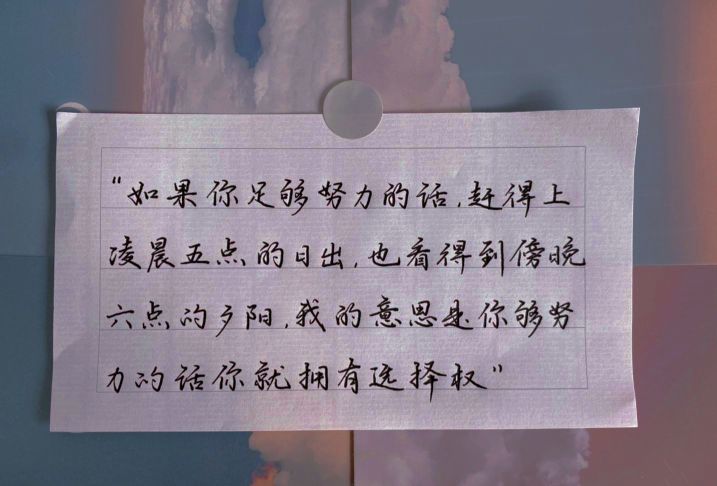 “如果你足够努力的话,赶得上
凌晨五点的日出,也看得到傍晚
六点的夕阳,我的意思是你够努
力的话你就拥有选择权”